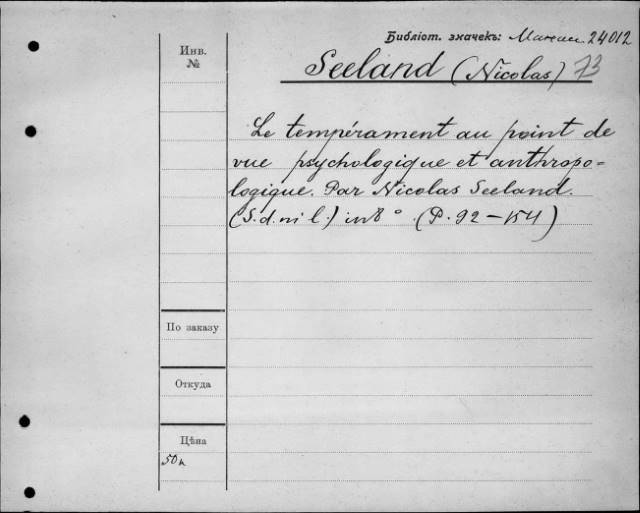 Библіот. значекъ: 24012
Инв.
№
Seeland (Nicolas) 73
Le tempérament au point de
vue psychologique et anthropo=
logique. Par Nicolas Seeland.
(S. d. ni l.) in 8° (P. 92-154)
По заказу
Откуда
Цѣна
50к